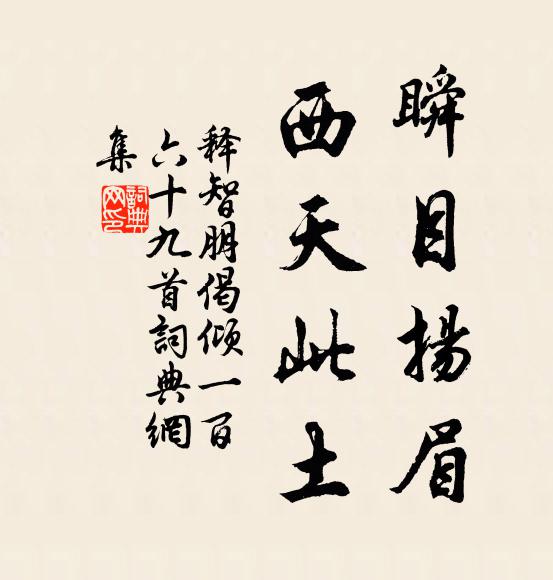 瞬目揚眉
西天此土
释智朋偈倾一百
六十九首詞典網
集
詞典网印